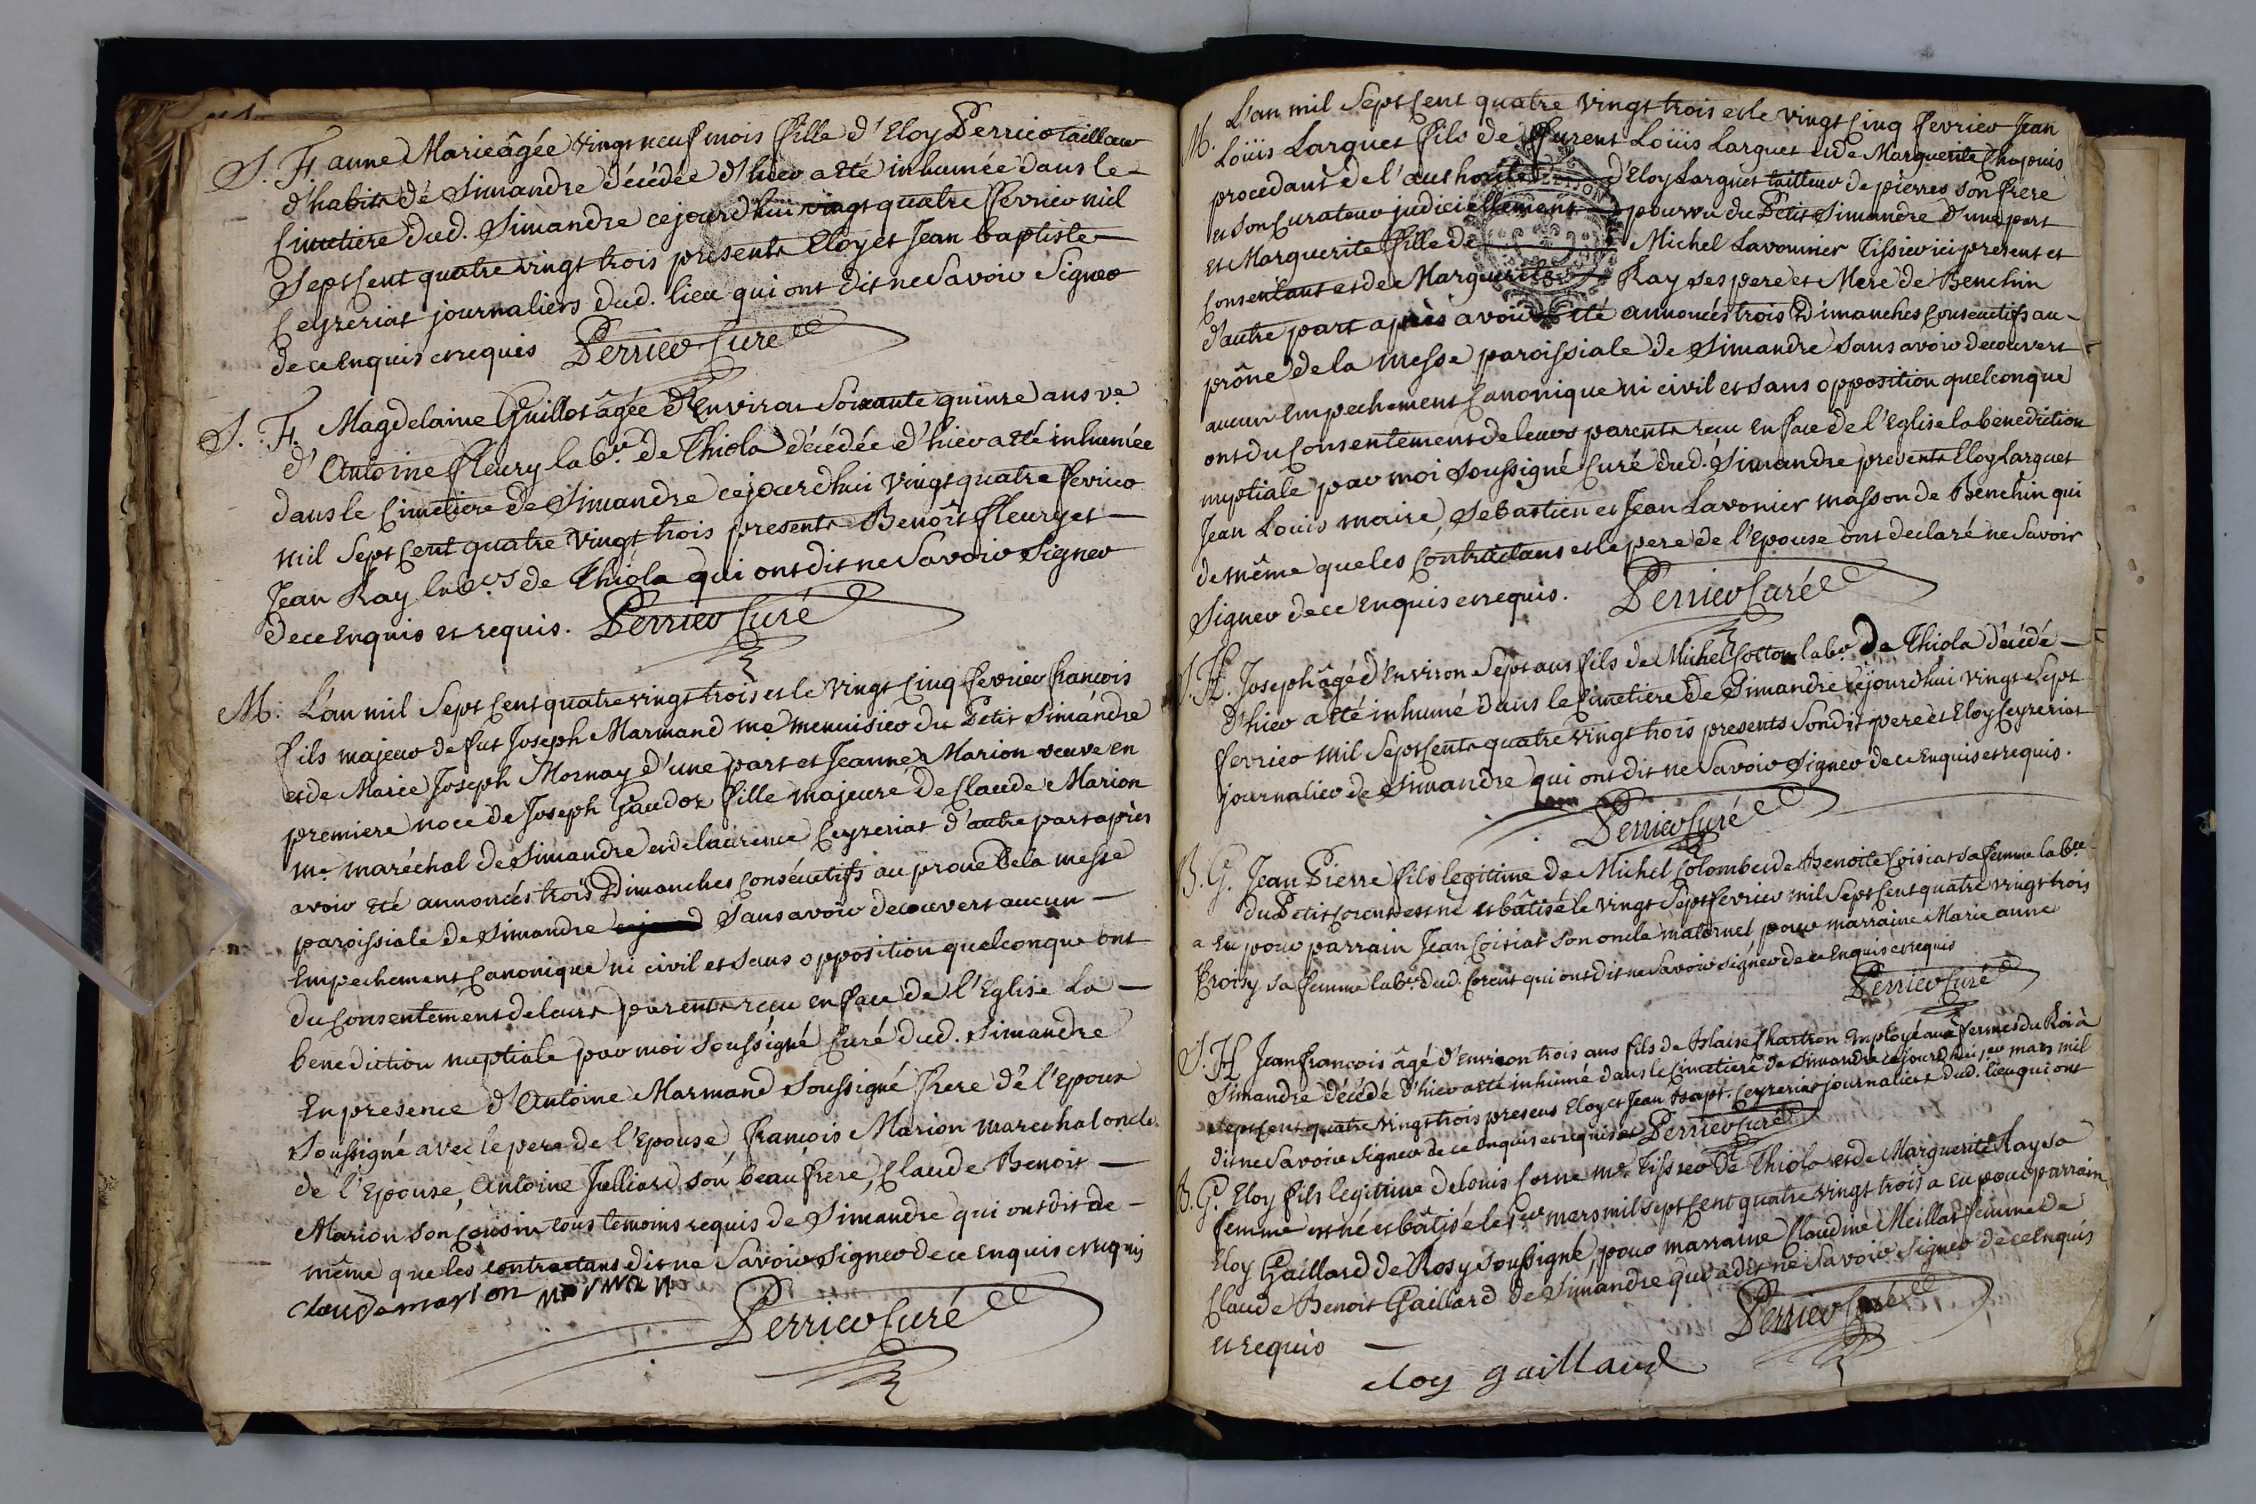 S. F. anne Marie âgée vingt neuf mois fille d'Eloy Perrier tailleur
d'habits de Simandre décédée d'hier a eté inhumée dans le
Cimetiere dud. Simandre cejourdhui vingt quatre fevrier mil
Sept Cent quatre vingt trois presents Eloy et Jean baptiste
Ceyzeriat journaliers dud. lieu qui ont dit ne Savoir Signer
de ce Enquis et requis Perrier Curé
S. F. Magdelaine Guillot âgée d'Environ Soixante quinze ans ve.
d'Antoine fleury labr. de Thiola décédée d'hier a eté inhumée
dans le Cimetiere de Simandre cejourdhui vingt quatre fevrier
mil Sept Cent quatre vingt trois presents Benoît fleury et
Jean Ray labrs. de Thiola qui ont dit ne Savoir Signer
de ce Enquis et requis. Perrier Curé
M. L'an mil Sept Cent quatre vingt trois et le vingt Cinq fevrier francois
fils majeur de fut Joseph Marmand me. menuisier du Petit Simandre
et de Marie Joseph Mornay d'une part et Jeanne Marion veuve en
premiere noce de Joseph Gaudoz fille majeure de Claude Marion
me. maréchal de Simandre et de laurence Ceyzeriat d'autre part après
avoir eté annoncés trois Dimanches consécutifs au prone de la messe
paroissiale de Simandre Sans avoir decouvert aucun
Empechement Canonique ni civil et sans opposition quelconque ont
du Consentement de leurs parents recu en face de l'Eglise La
benediction nuptiale par moi Soussigné Curé dud. Simandre
En presence d'Antoine Marmand Soussigné frere de l'Epoux
Soussigné avec le pere de l'Epouse, francois Marion marechal oncle
de l'Epouse, Antoine Julliard son beau frere, Claude Benoit
Marion son Cousin tous temoins requis de Simandre qui ont dit de
même que les contractans dit ne Savoir Signer de ce Enquis et requis
Claude marion
Perrier Curé
M. L'an mil Sept Cent quatre vingt trois et le vingt Cinq fevrier Jean
Loüis Larguet fils de Loüis Larguet et de Marguerite Chapuis
procedant de l'authorité d'Eloy Larguet tailleur de pierres son frere
et son Curateur judiciellement pourvu du Petit Simandre d'une part
et Marguerite fille de Michel Lavonnier Tissier ici present et
Consentant et de Marguerite Ray ses pere et Mere de Benchin
d'autre part après avoir eté annoncés trois Dimanches Consecutifs au
prône de la messe paroissiale de Simandre Sans avoir decouvert
aucun Empechement Canonique ni civil et sans opposition quelconque
ont du Consentement de leurs parents recu en face de l'Eglise la benediction
nuptiale par moi Soussigné Curé dud. Simandre presents Eloy Larguet
Jean Louis maire, Sebastien et Jean Lavonier masson de Benchin qui
de même que les Contractans et le pere de l'Epouse ont declaré ne Savoir
Signer de ce Enquis et requis. Perrier Curé
S. H. Joseph âgé d'Environ Sept ans fils de Michel Cotton labr. de Thiola décédé
d'hier a eté inhumé dans le Cimetiere de Simandre cejourdhui vingt Sept
fevrier mil Sept Cents quatre vingt trois presents Sondit pere et Eloy Ceyzeriat
journalier de Simandre qui ont dit ne Savoir Signer de ce Enquis et requis.
Perrier Curé
B. G. Jean Pierre fils legitime de Michel Colomb et de Benoite Coisiat sa femme
du Petit Corent est né et bâtisé le vingt Sept fevrier mil Sept Cent quatre vingt trois
a Eu pour parrain Jean Coisiat son oncle maternel pour marraine Marie anne
sa femme labr. dud. Corent qui ont dit ne Savoir signer de ce Enquis et requis
Perrier Curé
S. H Jean francois âgé d'Environ trois ans fils de Blaise Chartron Employé aux fermes du Roi à
Simandre décédé d'hier a eté inhumé dans le Cimetiere de Simandre cejourdhui 1er mars mil
Sept Cent quatre vingt trois presens Eloy et Jean Bapt. Ceyzeriat journaliers dud. lieu qui ont
dit ne Savoir Signer de ce Enquis et requis Perrier Curé
B. G. Eloy fils legitime de Louis Corne me. Tissier de Thiola et de Marguerite Ray sa
femme est né et bâtisé le 1er mars mil sept Cent quatre vingt trois a Eu pour parrain
Eloy Gaillard de Rosy Soussigné, pour marraine Claudine Meillat femme de
Claude Benoit Gaillard de Simandre qui a dit ne Savoir Signer de ce Enquis
et requis Perrier Curé
eloy gaillard